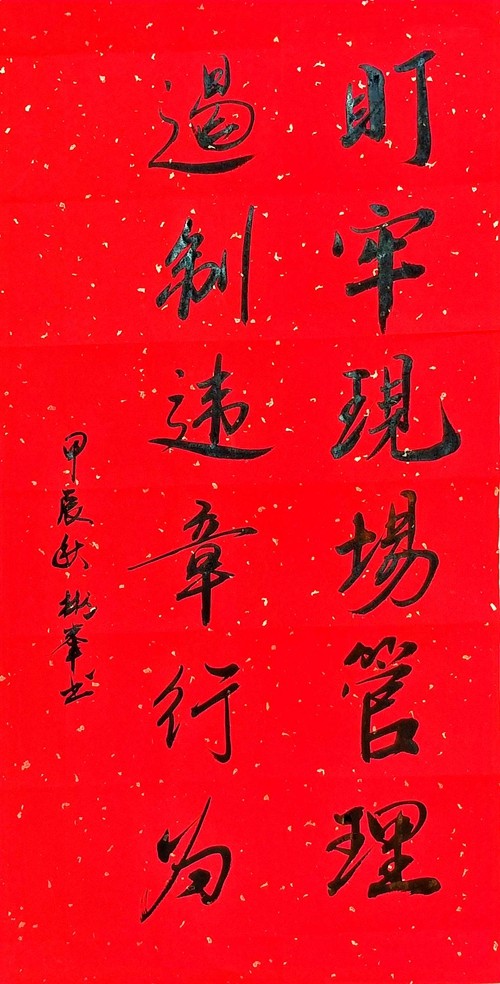 盯牢現場管理
遏制违章行为
甲辰秋彬峯书